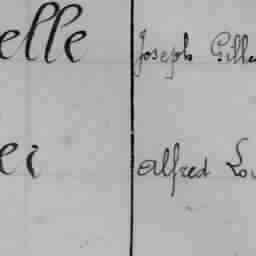 elle Joseph Gille
ei Alfred Lou